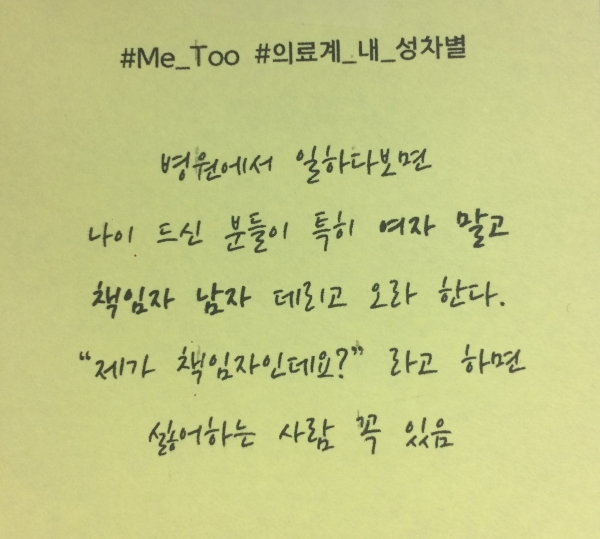 #Me_Too #의료계_내_성차별
병원에서 일하다보면
나이 드신 분들이 특히 여자 말고
책임자 남자 데리고 오라 한다.
“제가 책임자인데요?” 라고 하면
싫어하는 사람 꼭 있음